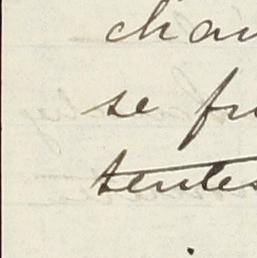 chan
se fr
tentes